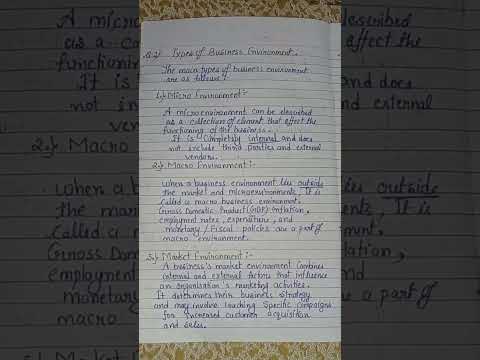 Q.2) Types of Business Environment.
The main types of business environment
are as follows:
1.) Micro Environment:-
A micro environment can be described
as a collection of element that effect the
functioning of the business.
It is Completely internal and does
not include third parties and external
vendors.
2.) Macro Environment:-
When a business environment lies outside
the market and microenvironments, It is
Called a macro business environment.
Gross Domestic Product (GDP) inflation,
employment rates, expenditure, and
monetary / Fiscal policies are a part of
macro environment.
3.) Market Environment:-
A business's market environment Combines
internal and external factors that influence
an organisation's marketing activities.
It determines their business strategy
and may involve launching Specific campaigns
for increased customer acquisition
and sales.